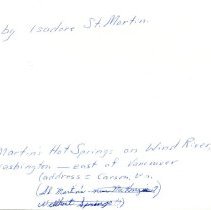 by Isadore St. Martin.
Martin's Hot Springs on Wind River,
Washington — east of Vancouver
(address = Carson, Wn.
(St Martin's